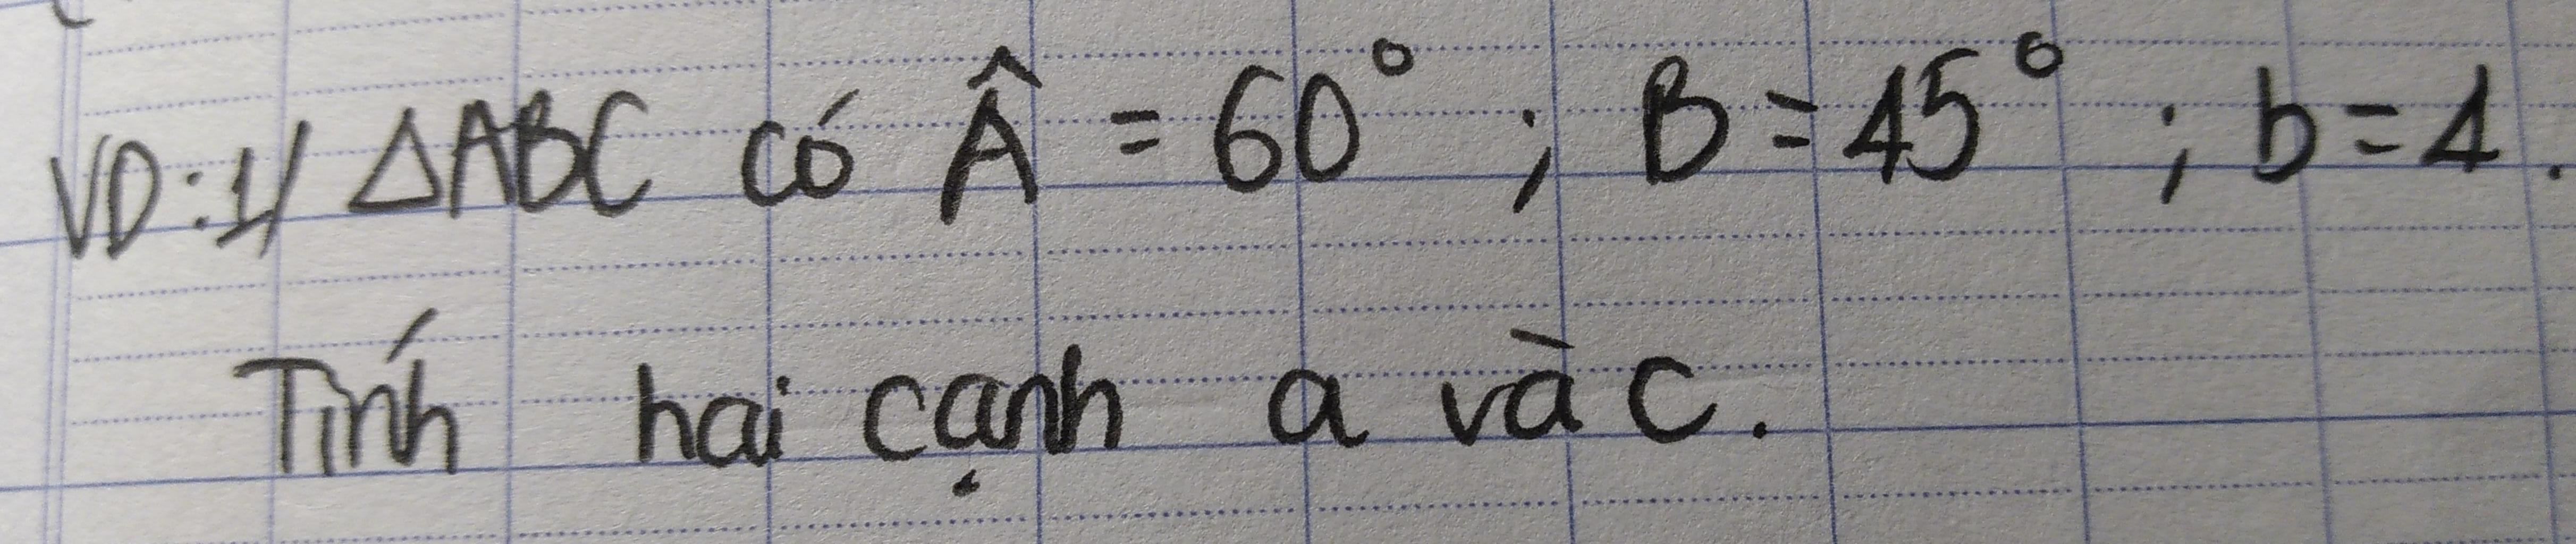 VD:1/ ΔABC có Â = 60° ; B = 45° ; b = 4.
Tính hai cạnh a và c.